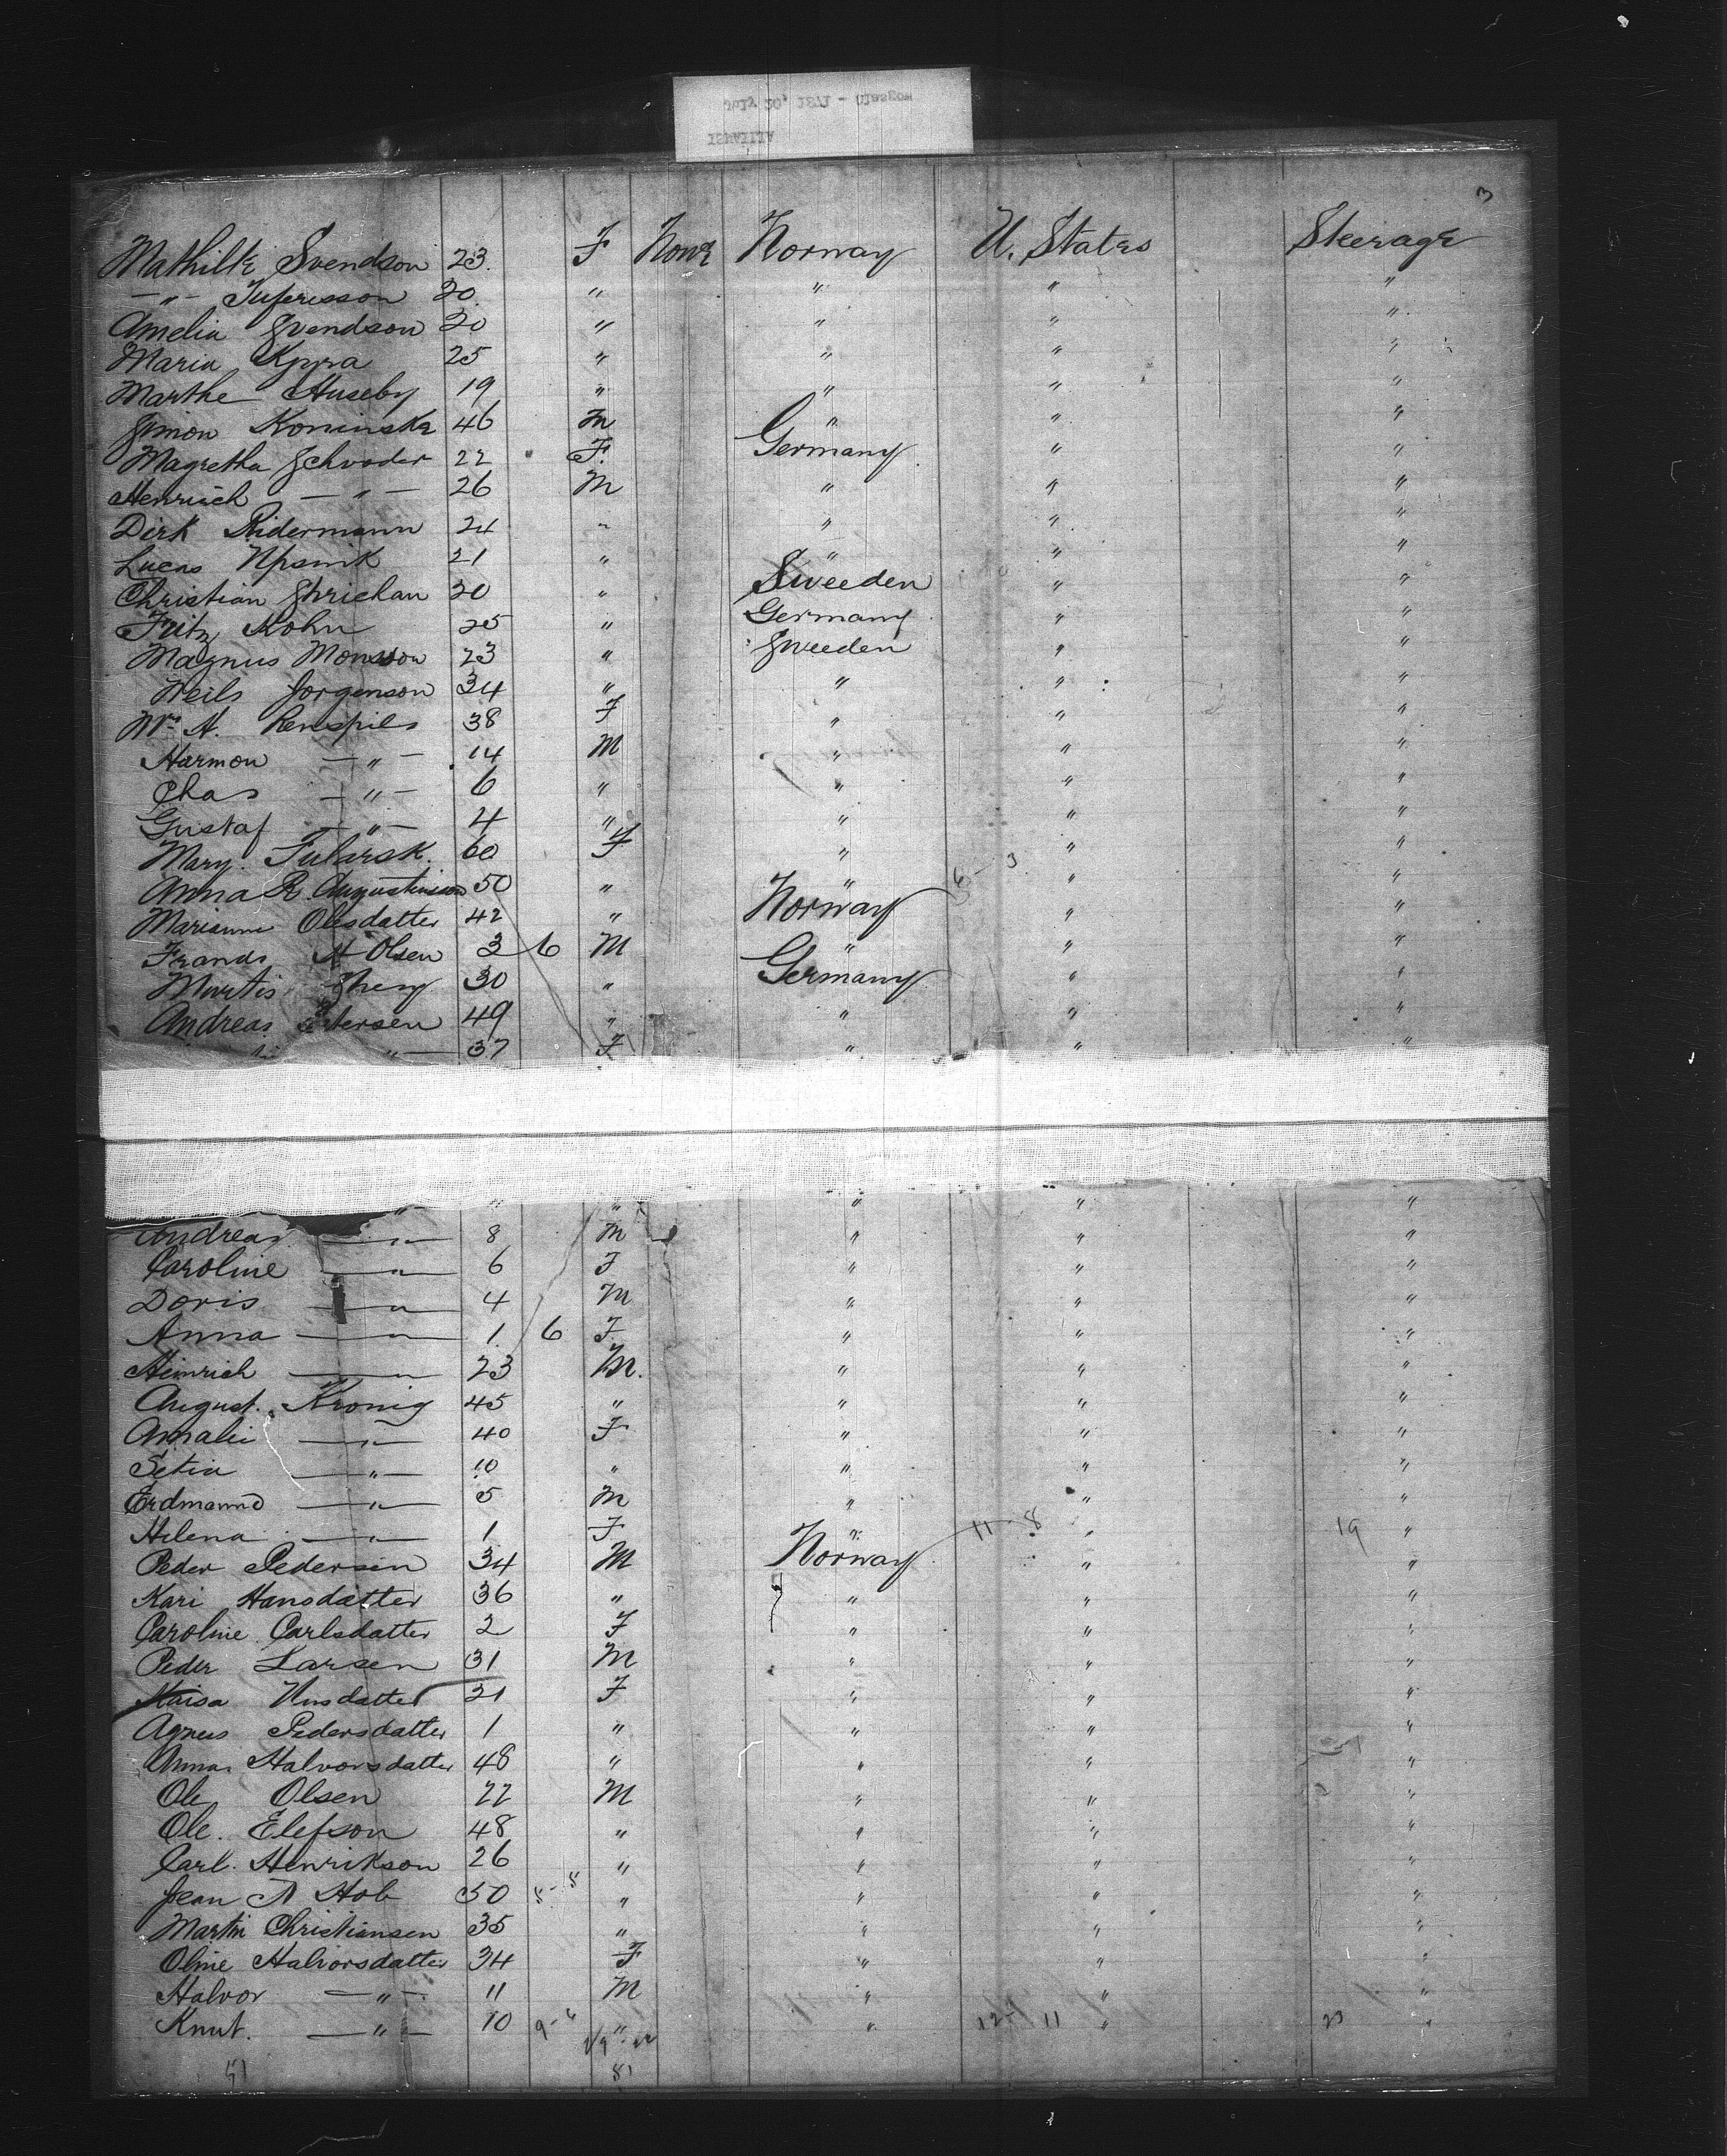 July 20, 1871 - Glasgow
ISMAILIA
3
Mathilde Svendson 23. F None Norway U. States Steerage
—"— 20. " " " "
Amelia Svendson 20 " " " "
Maria 25 " " " "
Marthe Huseby 19 " " " "
Simon Koninska 46 M " " "
Magretha Schroder 22 F. Germany " "
Henrich —"— 26 M " " "
Dirk Ridermann 24 " " " "
Lucas 21 " " " "
Christian 20 " Sweeden " "
Fritz Kohn 25 " Germany " "
Magnus Monsson 23 " Sweeden " "
Neils Jorgenson 34 " " " "
Mrs A. 38 F " " "
Harmon —"— 14 M " " "
Chas —"— 6 " " " "
Gustaf —"— 4 " " " "
Mary 60 F " " "
Anna R. Augustinsson 50 " " " "
Marianne Olesdatter 42 " Norway " "
Frands A Olsen 3 6 M " " "
30 " Germany " "
Andreas Petersen 49 " " " "
" — 37 F " " "
" " " " " "
Andreas —"— 8 M " " "
Caroline —"— 6 F " " "
Doris —"— 4 M " " "
Anna —"— 1 6 F " " "
Heinrich —"— 23 M. " " "
August Kronig 45 " " " "
Amalie —"— 40 F " " "
—"— 10 " " " "
Erdmann —"— 5 M " " "
Helena —"— 1 F " 11 - 8 " 19 "
Peder Pedersen 34 M Norway " "
Kari Hansdatter 36 " " " "
Caroline Carlsdatter 2 F " " "
Peder Larsen 31 M " " "
Kaisa 31 F " " "
Agnes Pedersdatter 1 " " " "
Anna Halvorsdatter 48 " " " "
Ole Olsen 22 M " " "
Ole. Elefson 48 " " " "
Carl. Henrikson 26 " " " "
Jean 50 " " " "
Martin Christiansen 35 " " " "
Oline Halvorsdatter 34 F " " "
Halvor —"— 11 M " " "
Knut. —"— 10 " " 11 " 23 "
51 81